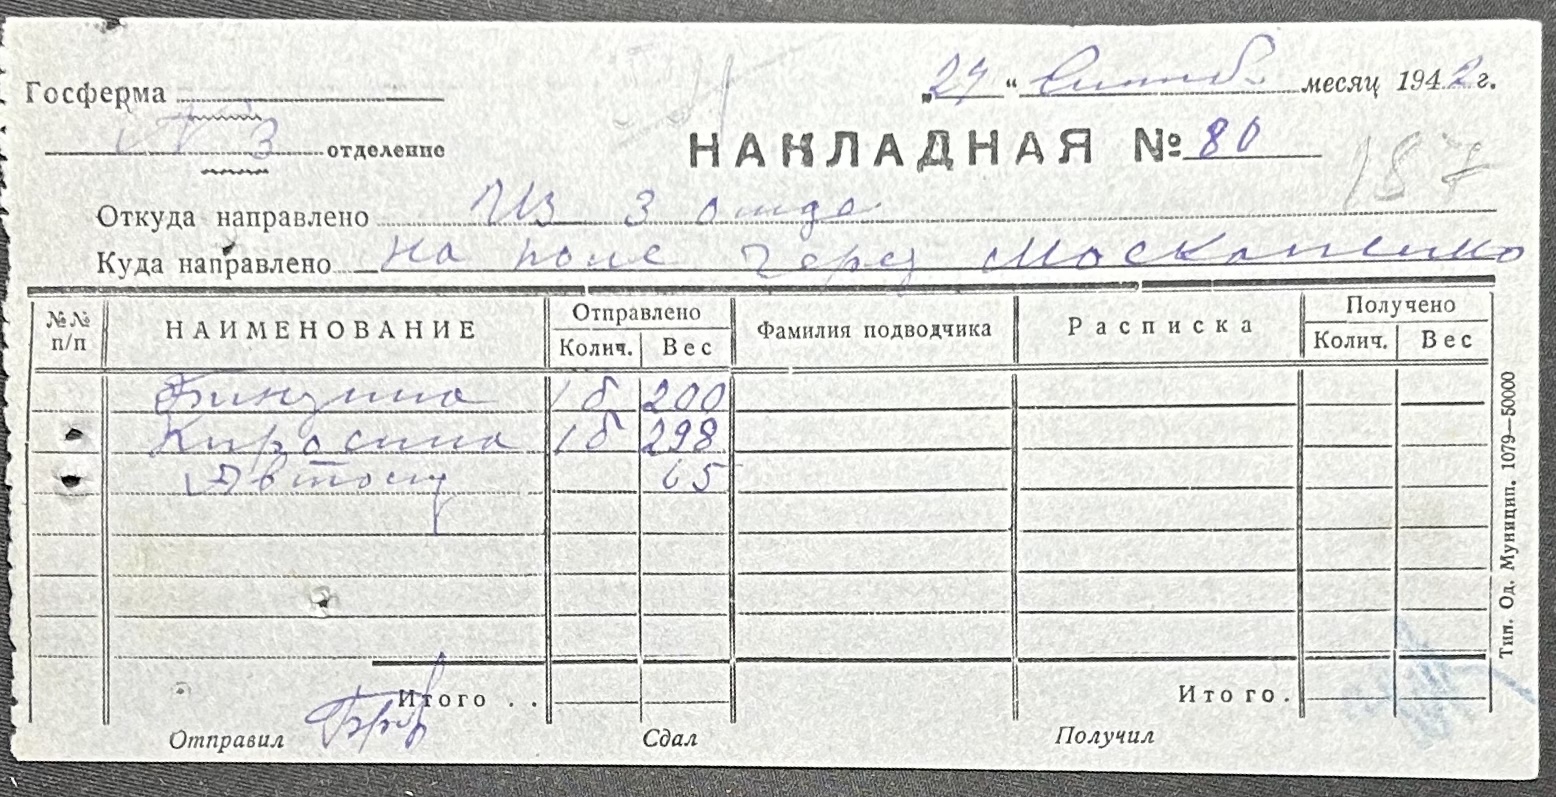 Госферма
„27“ Сентяб месяц 1942 г.
№ 3 отделение
НАКЛАДНАЯ № 80
187
Откуда направлено Из 3 отде
Куда направлено На поле через Москаленко
№№ п/п НАИМЕНОВАНИЕ Отправлено Фамилия подводчика Расписка Получено
Колич. Вес Колич. Вес
Бинзина 1 б 200
Киросина 1 б 298
Автолу 65
Итого . . Итого .
Отправил Сдал Получил
Тип. Од. Муницип. 1079—50000